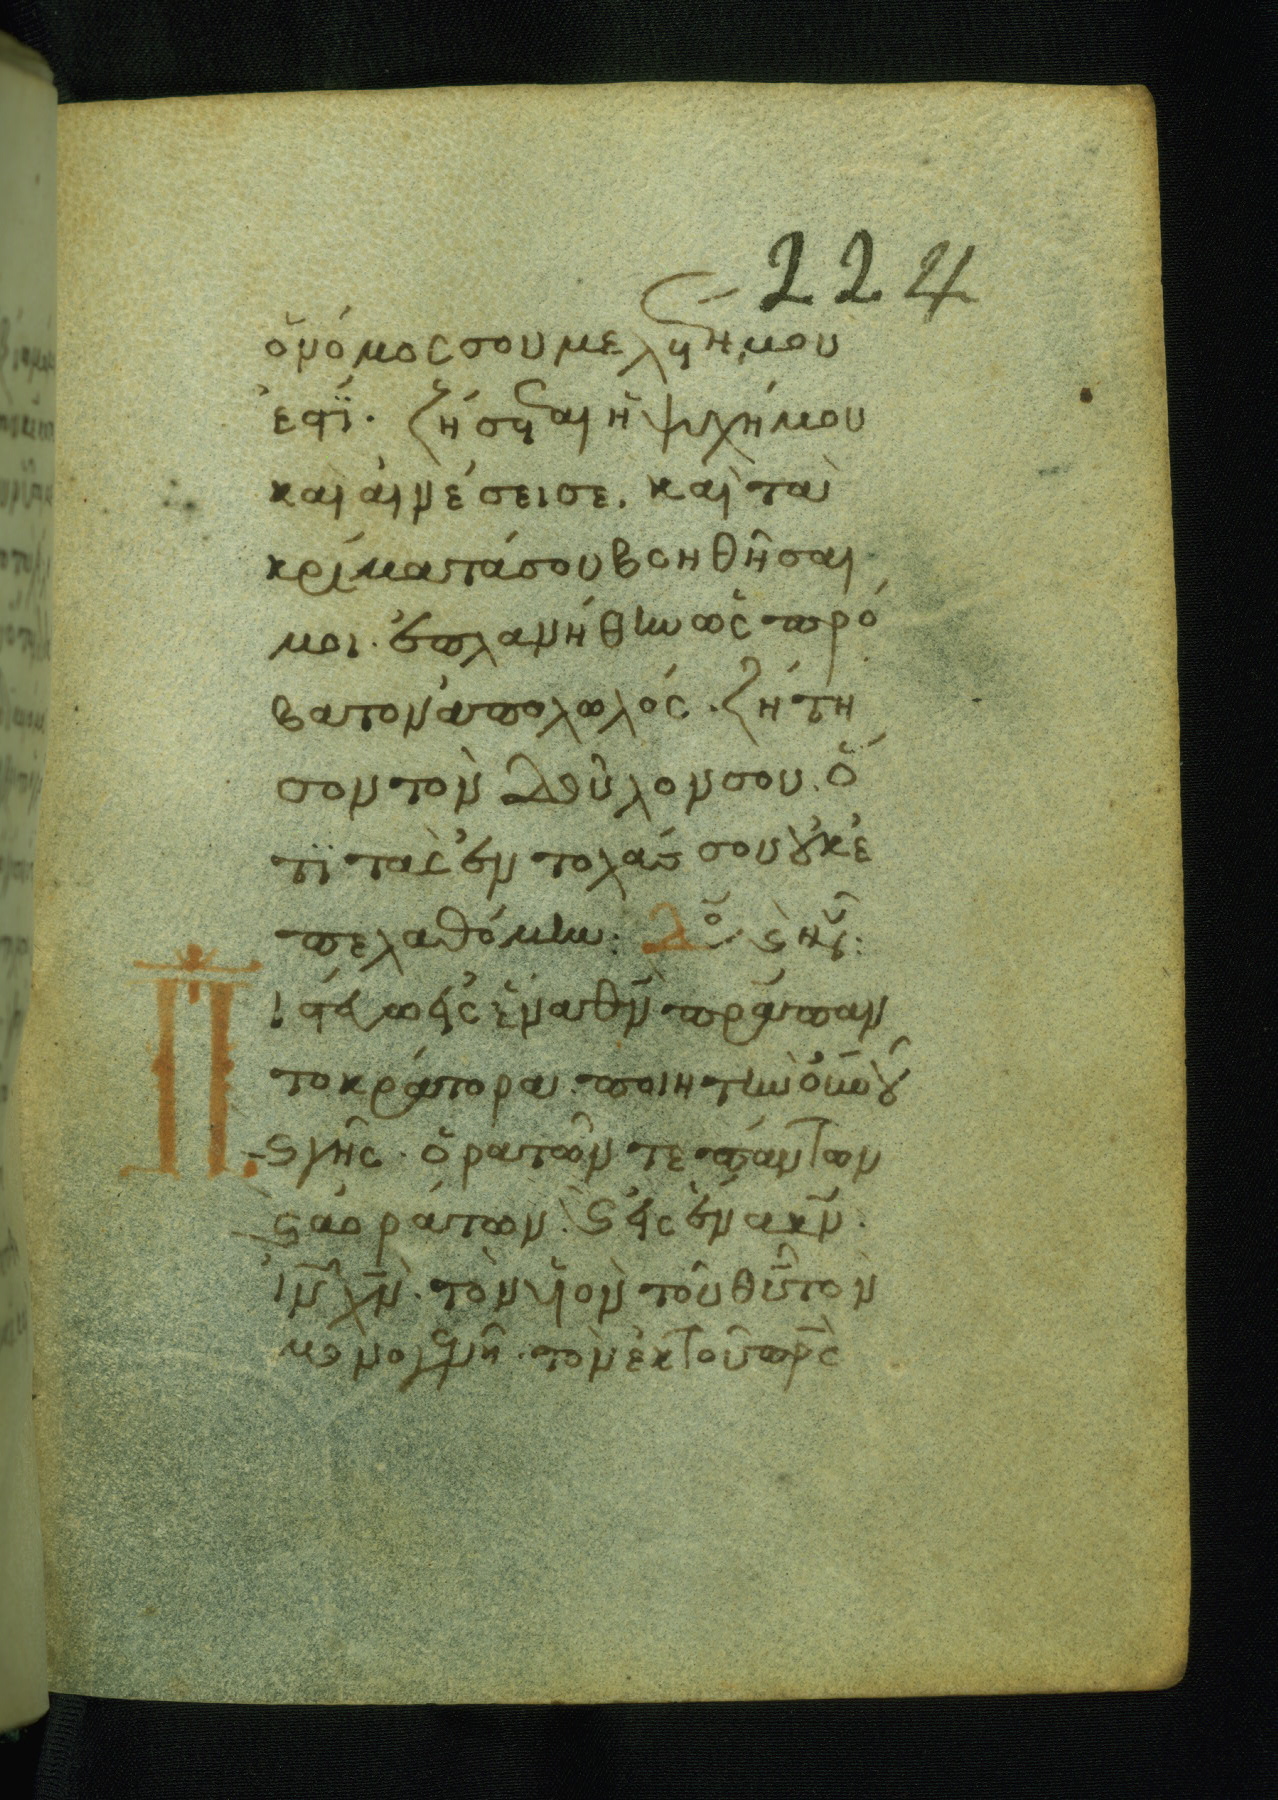 224
ὁ νόμος σου μελέτη μου
ἐστϊ· ζήσεται ἡ ψυχή μου
καὶ αἰνέσει σε. καὶ τὰ
κρίματά σου βοηθήσει
μοι· ἐπλανήθην ὡς πρό
βατον ἀπολωλός· ζήτη
σον τὸν δοῦλον σου. ὅ
τϊ τὰς ἐντολάς σου οὐκ ἐ
πελαθόμην:
Π
ιστεύω εἰς ἕνα θν πρα παν
τοκράτορα· ποιητὴν οὐνου
κ γῆς· ὁρατῶν τε πάντων
κ ἀοράτων. κ εἰς ἕνα κν.
ιν χν· τὸν υἱὸν τοῦ θυ τὸν
μονογενῆ· τὸν ἐκ τοῦ πρς